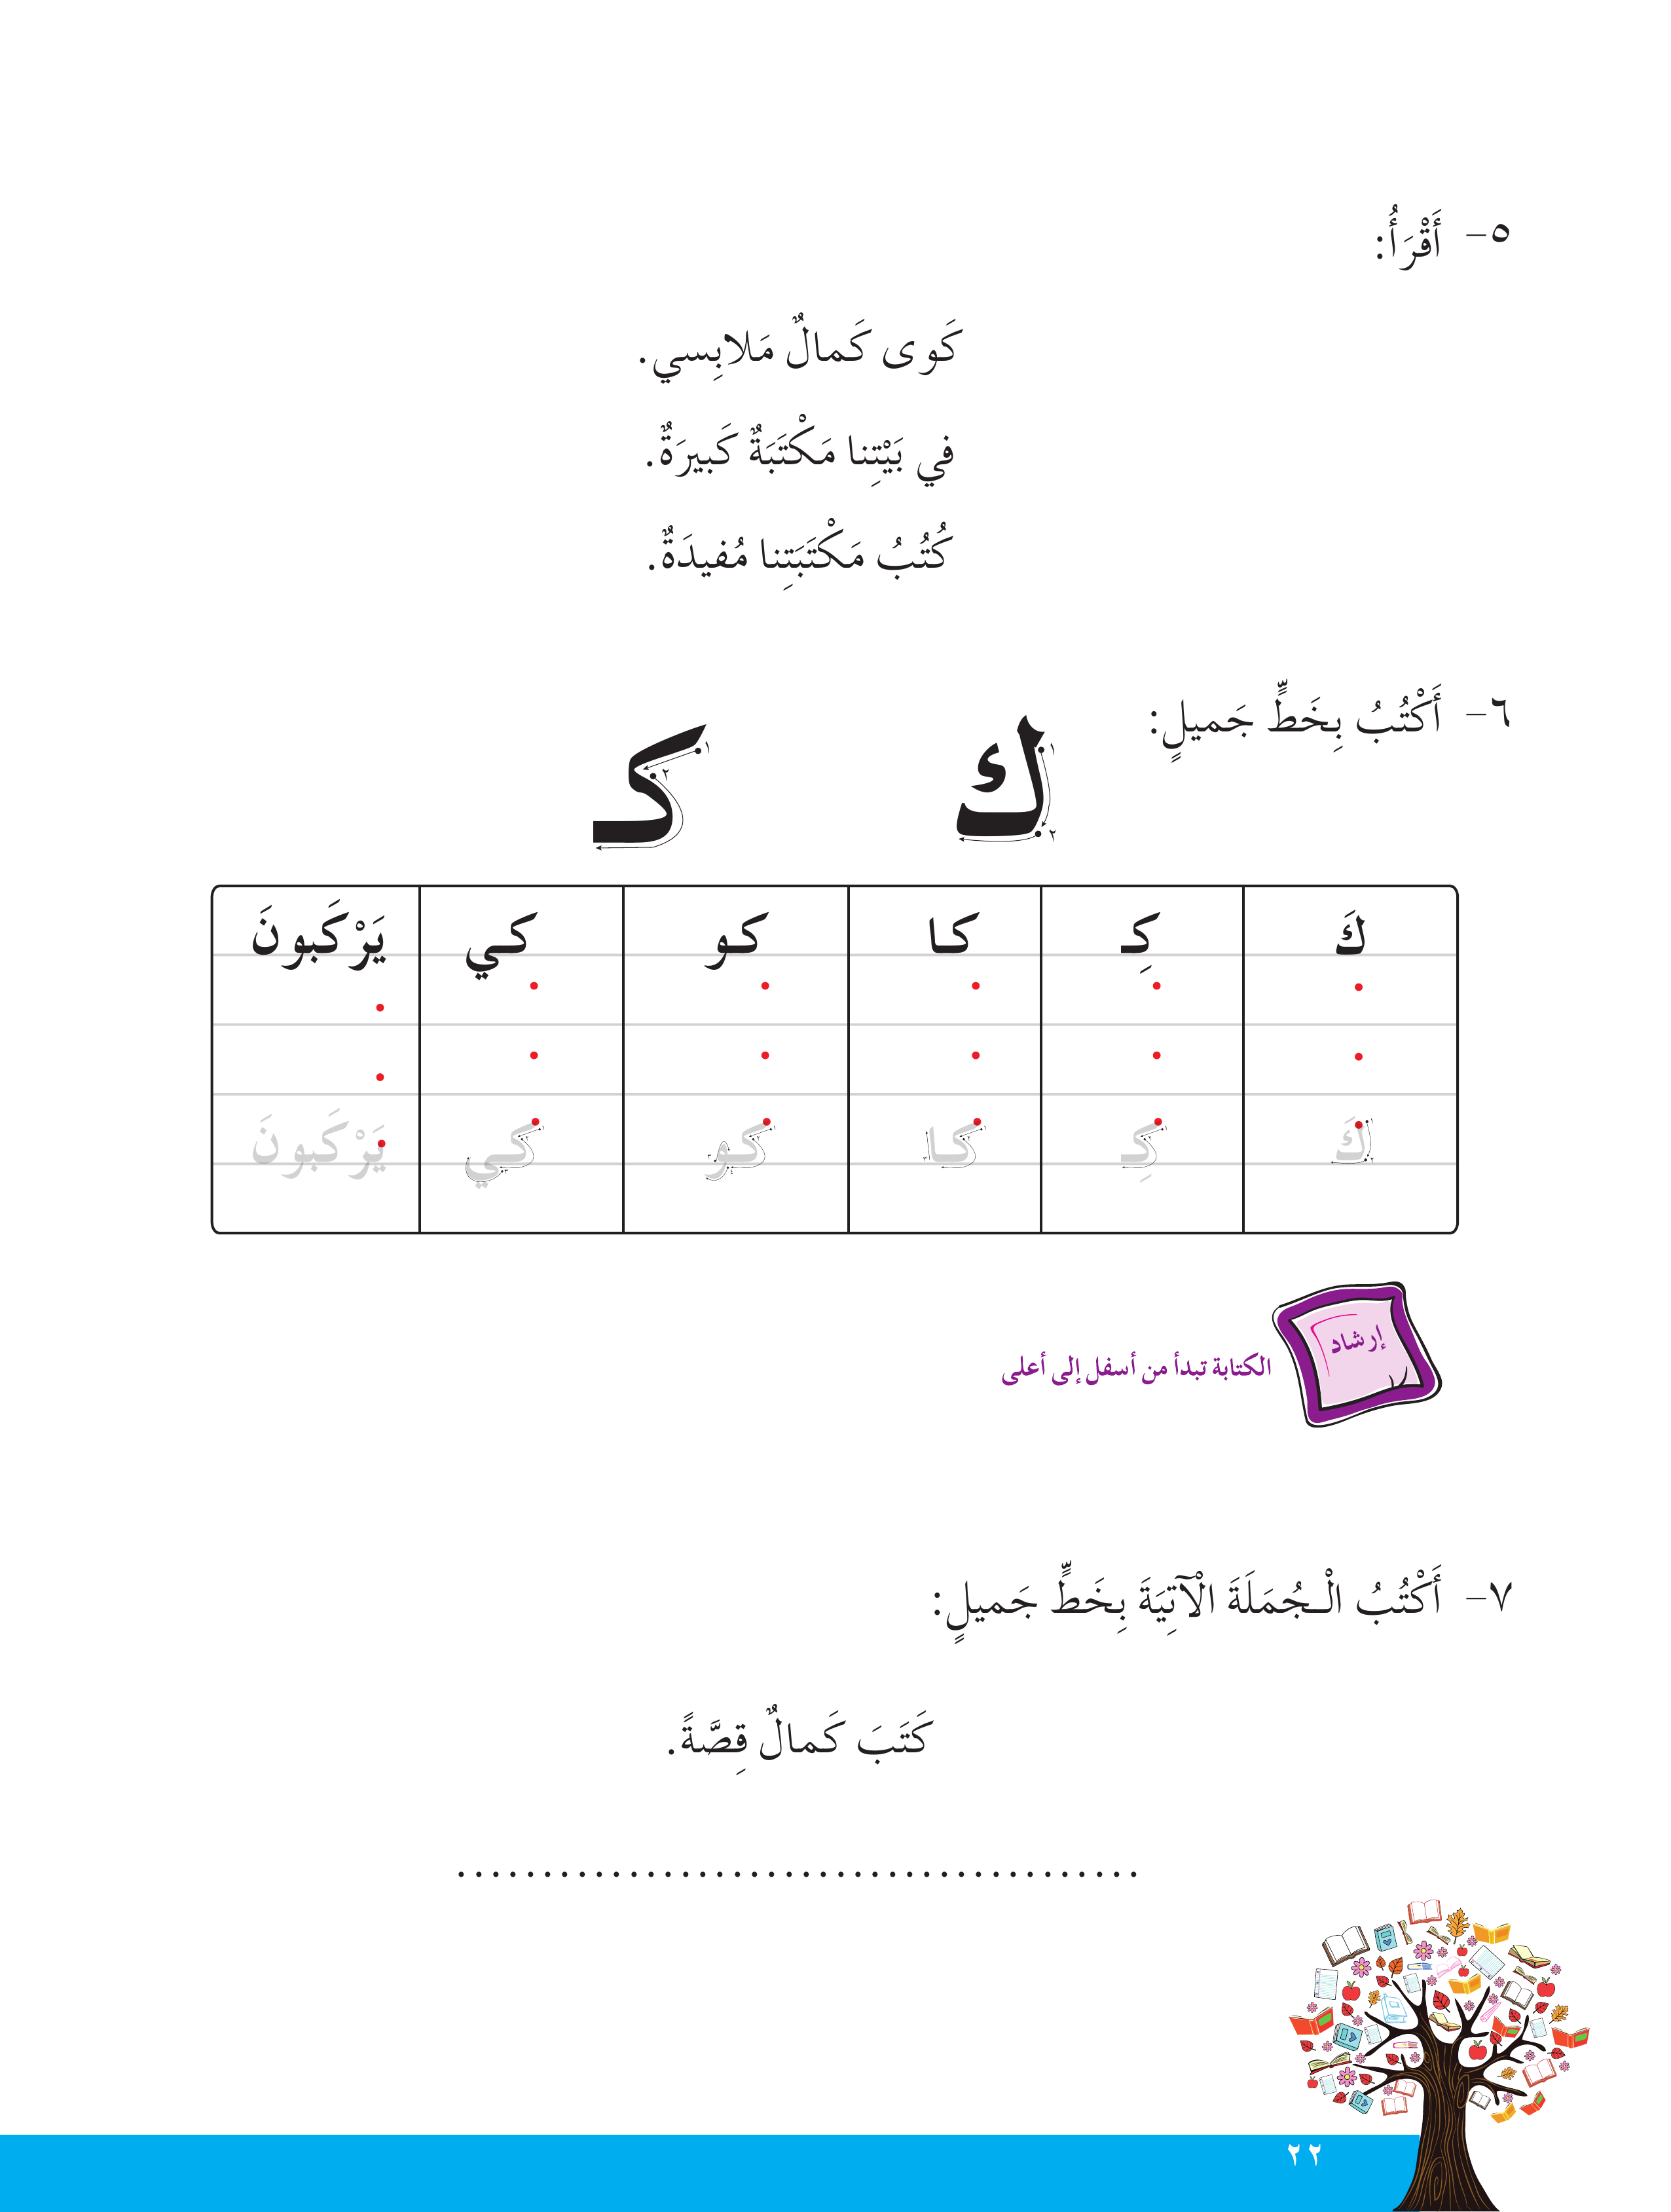 ٥- أَقْرَأُ:
كَوى كَمالٌ مَلابِسي.
في بَيْتِنا مَكْتَبَةٌ كَبيرَةٌ.
كُتُبُ مَكْتَبَتِنا مُفيدَةٌ.
٦- أَكْتُبُ بِخَطٍّ جَميلٍ:
ك ١ ٢ كـ ١ ٢
كَ كِـ كـا كـو كـي يَرْكَبونَ
كَ ١ ٢ كِـ ١ ٢ كـا ١ ٢ ٣ كـو ١ ٢ ٣ ٤ كـي ١ ٢ ٣ يَرْكَبونَ
إرشاد
الكتابة تبدأ من أسفل إلى أعلى
٧- أَكْتُبُ الْـجُمَلَةَ الْآتِيَةَ بِخَطٍّ جَميلٍ:
كَتَبَ كَمالٌ قِصَّةً.
........................................
٢٢